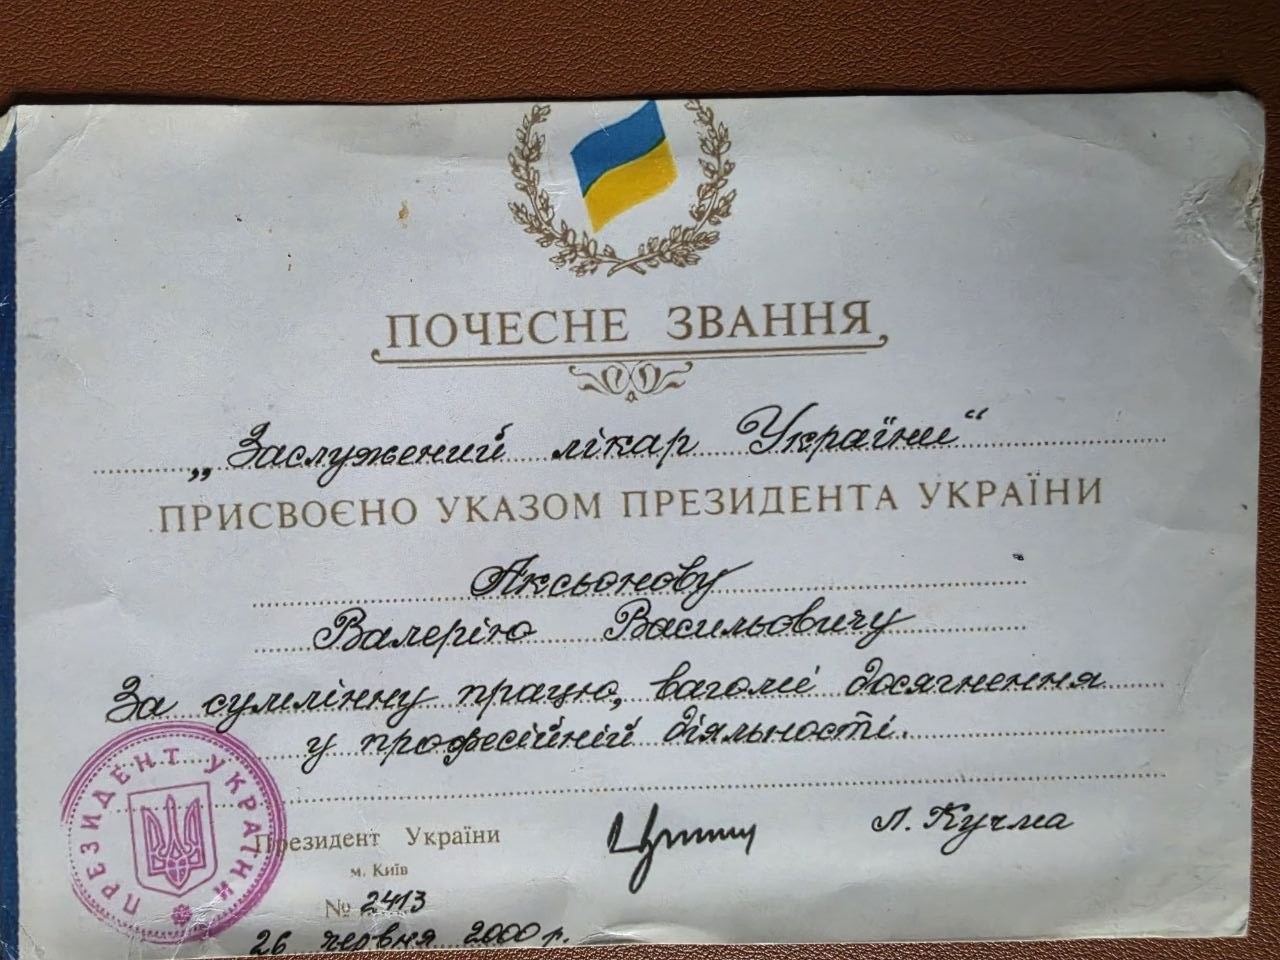 ПОЧЕСНЕ ЗВАННЯ
„Заслужений лікар України“
ПРИСВОЄНО УКАЗОМ ПРЕЗИДЕНТА УКРАЇНИ
Аксьонову
Валерію Васильовичу
За сумлінну працю, вагомі досягнення
у професійній діяльності.
ПРЕЗИДЕНТ УКРАЇНИ
Президент України
Л. Кучма
м. Київ
№ 2413
26 червня 2000 р.